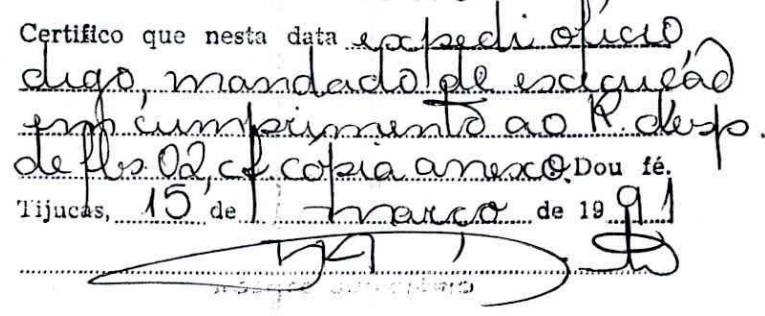 Certifico que nesta data expedi ofício
digo, mandado de execução
em cumprimento ao R. desp.
de fls. 02, cf. cópia anexo. Dou fé.
Tijucas, 15 de março de 19 91